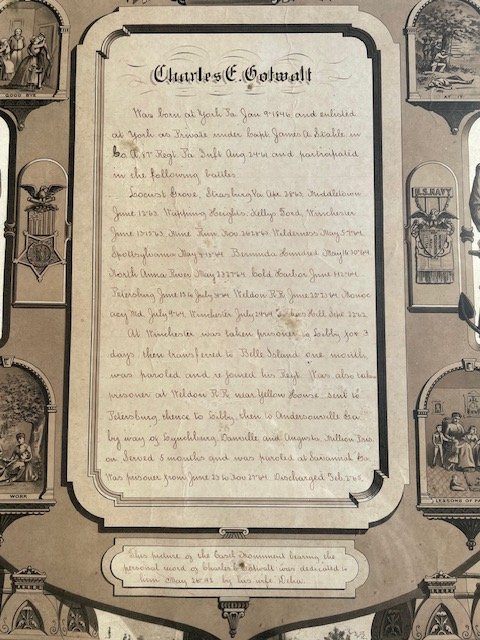 GOOD BYE
AT IT
Charles E. Gotwalt
Was born at York Pa. Jan 9th 1846, and enlisted
at York as Private under Capt James A Stahle in
Co A, 87 Regt Pa Inft Aug 24 61 and participated
in the following battles.
Locust Grove, Strasburg Va Apr. 28 63, Middletown
June 12 63. Wapping Heights, Kellys Ford, Winchester
June 13 15 63, Mine Run Nov 26 28 63, Wilderness May 5 7 64,
Spottsylvania May 8 18 64 Bermuda Hundred May 16 30 64,
North Anna River May 23 27 64, Cold Harbor June 1 12 64
Petersburg June 15 to July 64 Weldon R.R. June 22 23 64, Monoc
acy Md. July 9 64, Winchester July 24 64 Hill Sept. 22 63
At Winchester was taken prisoner to Libby for 3
days then transferred to Belle Island one month,
was paroled and re joined his Regt. Was also taken
prisoner at Weldon R R. near Yellow House sent to
Petersburg thence to Libby, then to Andersonville Ga
by way of Lynchburg, Danville and Augusta, Million Pris
on Served 5 months and was paroled at Savannah Ga.
Was prisoner from June 23 to Nov 27 64. Discharged Feb. 2 65,
U.S. NAVY
WORK
LESSONS OF
This picture of the Monument bearing the
personal record of Charles E Gotwalt was dedicated to
him May 26 by his wife, Delia.